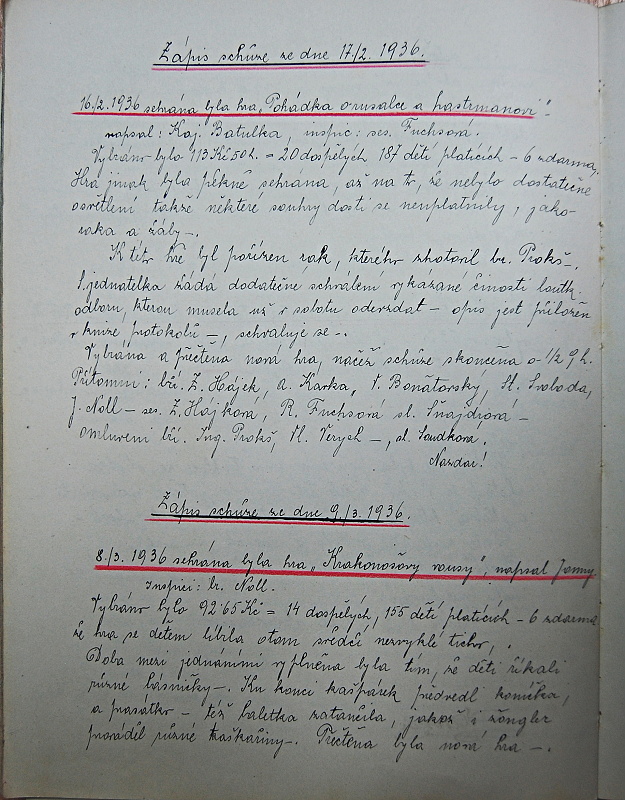 Zápis schůze ze dne 17./2. 1936.
16./2. 1936 sehrána byla hra „Pohádka o rusalce a hastrmanovi“.
napsal: Kaj. Batulka, inspic: ses. Fuchsová.
Vybráno bylo 113 Kč 50 h. = 20 dospělých 187 dětí platících – 6 zdarma,
Hra jinak byla pěkně sehrána, až na to, že nebylo dostatečné
osvětlení takže některé souhry dosti se neuplatnily, jako
raka a žáby –.
K této hře byl pořízen rak, kterého zhotovil br. Prokš –.
Jednatelka žádá dodatečné schválení vykázané činosti loutk.
odboru, kterou musela už v sobotu odevzdat – opis jest přiložen
v knize protokolů –, schvaluje se –.
Vybrána a přečtena nová hra, načež schůze skončena o ½ 9 h.
Přítomni: bří. Z. Hájek, A. Karka, V. Bonatovský, St. Svoboda,
J. Noll – ses. Z. Hájková, R. Fuchsová sl. Šnajdrova –
omluveni bří. Ing. Prokš, Vl. Verych –, sl. Soudkova.
Nazdar!
Zápis schůze ze dne 9./3. 1936.
8./3. 1936 sehrána byla hra „Krakonošovy vousy“, napsal Jonny
Inspicí: br. Noll.
Vybráno bylo 92·65 Kč = 14 dospělých, 155 dětí platících – 6 zdarma
že hra se dětem líbila otom svědčí nezvyklé ticho,.
Doba mezi jednáními vyplněna byla tím, že děti říkali
různé básničky –. Ku konci kašpárek předvedl koníčka,
a prasátko – též baletka zatančila, jakož i žonglér
prováděl různé kaškařiny –. Přečtena byla nová hra –.